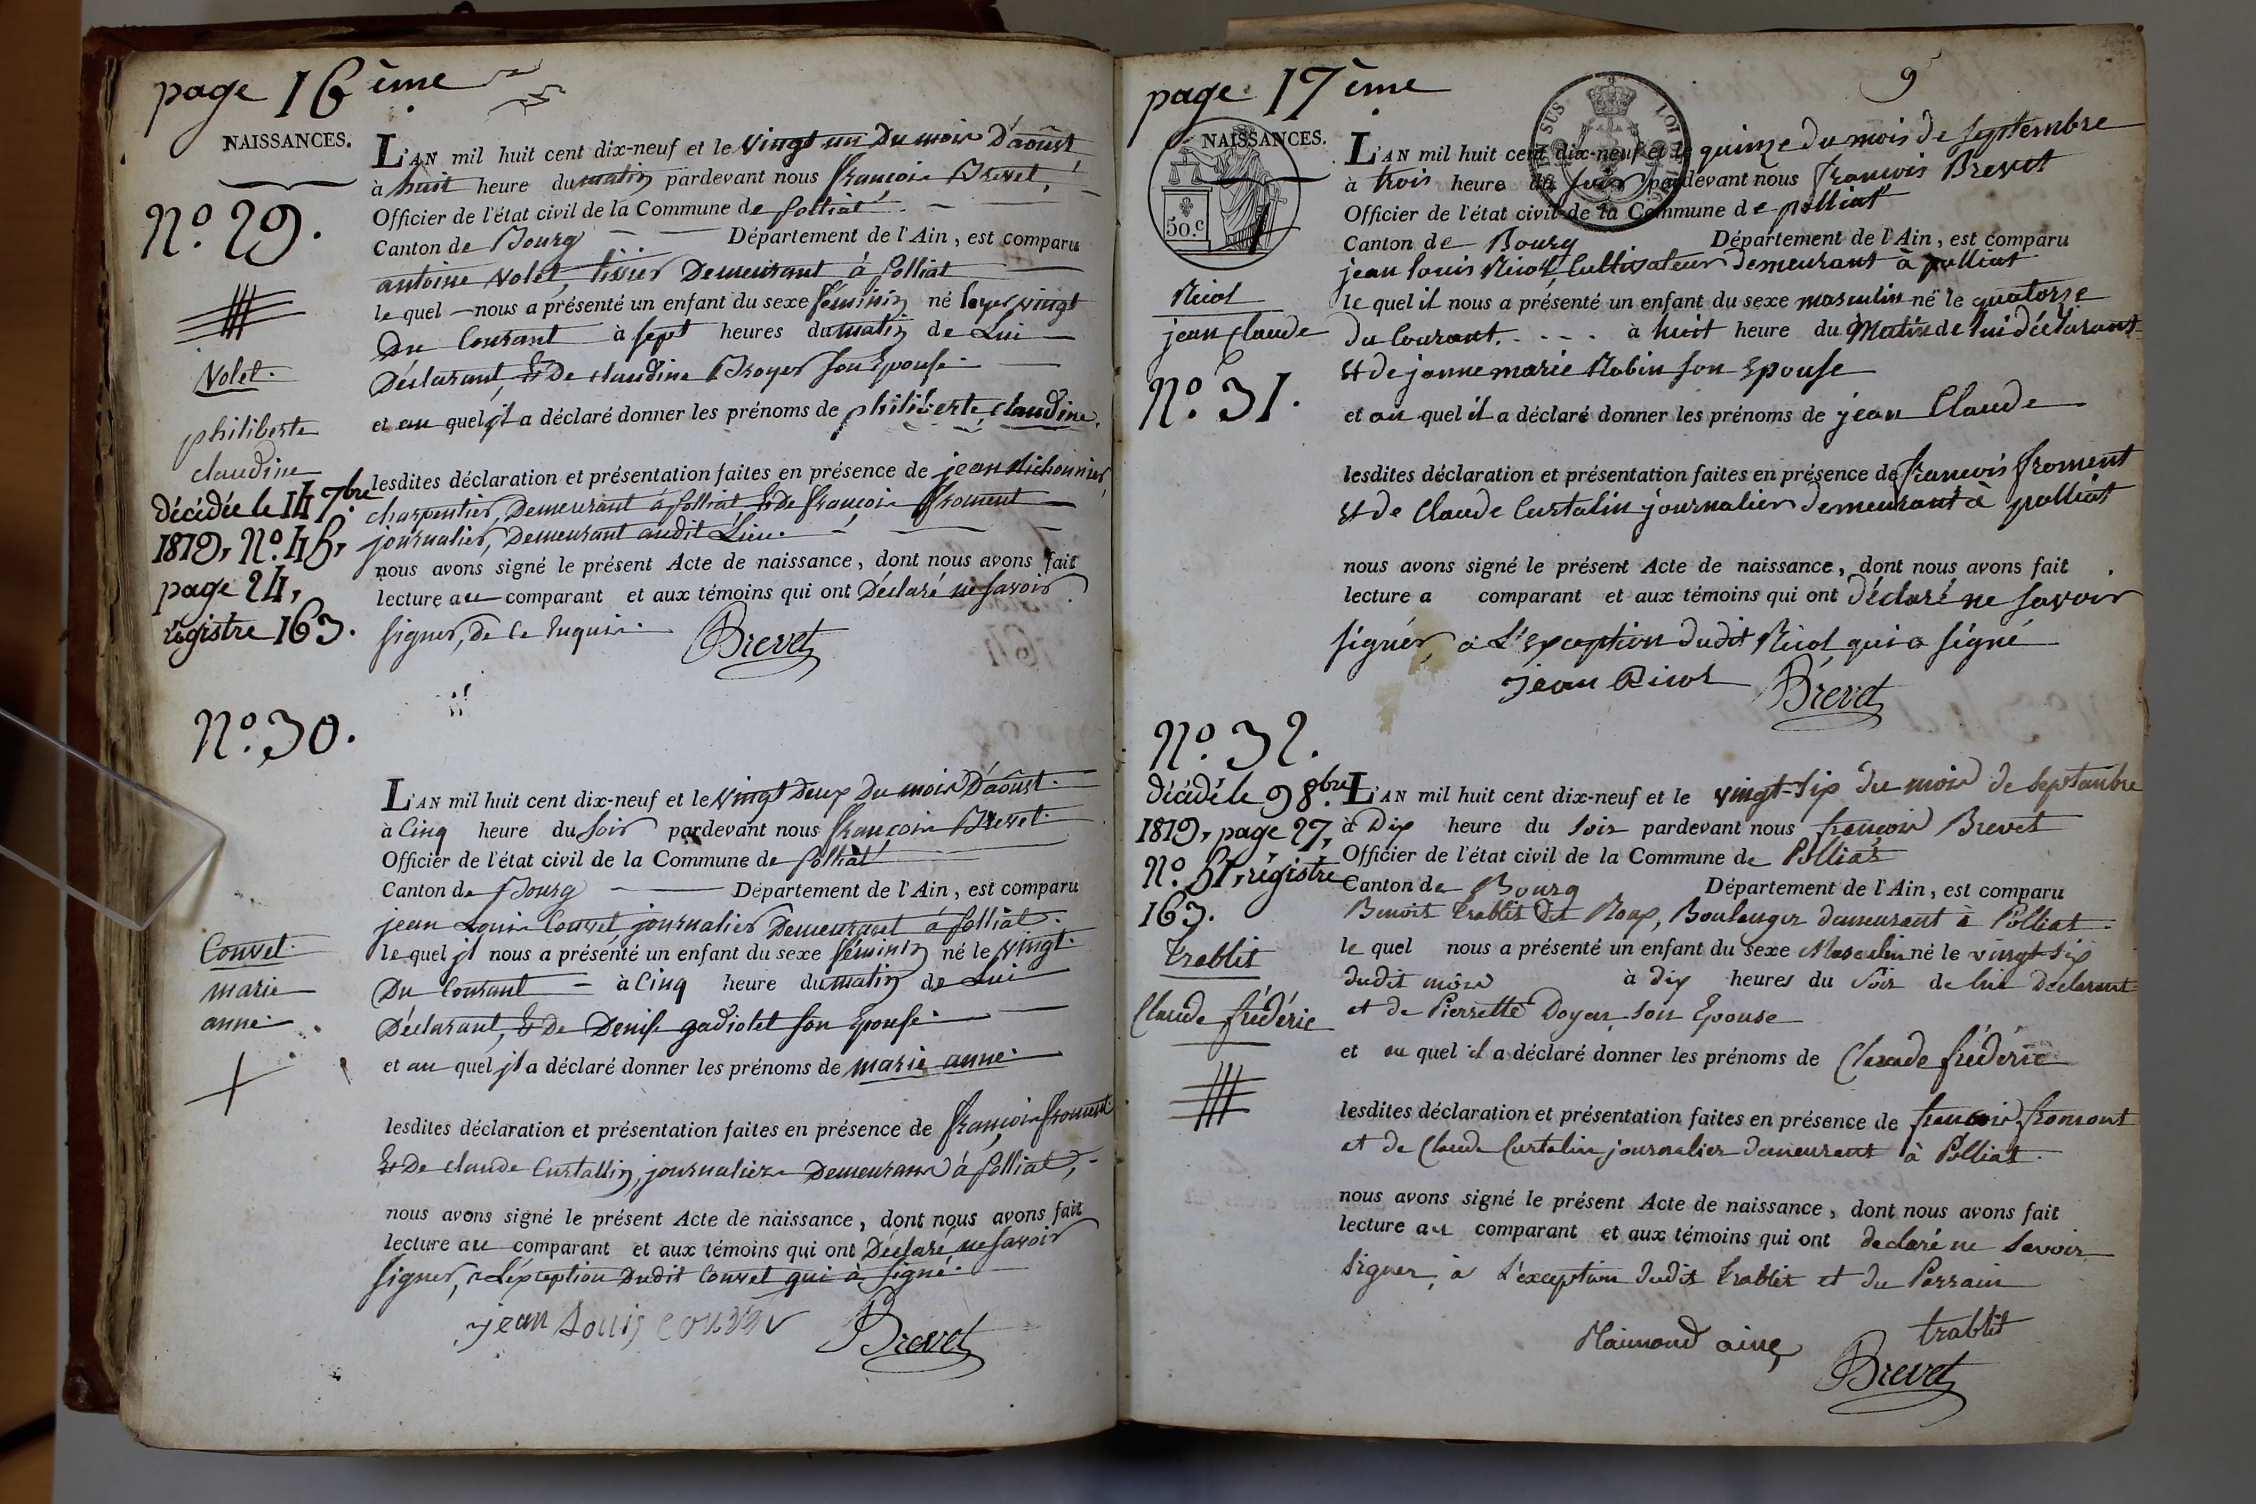 page 16 ème
NAISSANCES.
L'AN mil huit cent dix-neuf et le vingt un du mois D'août
à huit heure du matin pardevant nous françois Brevet,
Officier de l'état civil de la Commune de polliat
Canton de Bourg Département de l'Ain, est comparu
antoine Volet, tissier Demeurant à polliat
le quel nous a présenté un enfant du sexe féminin né le vingt
Du Courant à sept heures du matin de Lui
Déclarant, & De claudine Broyer son Epouse
et au quel jl a déclaré donner les prénoms de philiberte claudine.
lesdites déclaration et présentation faites en présence de jean Michonnier,
charpentier, Demeurant à polliat, & de françois froment
journalier, Demeurant audit Lieu.
nous avons signé le présent Acte de naissance, dont nous avons fait
lecture au comparant et aux témoins qui ont Déclaré ne savoir
signer, de ce Enquis.
Brevet
N.o 29.
Volet.
philiberte
claudine
décédée le 14 7.bre
1819, N.o 45,
page 24,
régistre 163.
N.o 30.
L'AN mil huit cent dix-neuf et le vingt Deux Du mois D'août.
à Cinq heure du soir pardevant nous françois Brevet
Officier de l'état civil de la Commune de polliat
Canton de Bourg Département de l'Ain, est comparu
jean Louis Couvet, journalier Demeurant à polliat.
le quel jl nous a présenté un enfant du sexe féminin né le vingt
Du Courant à Cinq heure du matin de Lui
Déclarant, & De Denise gadiolet son Epouse
et au quel jl a déclaré donner les prénoms de marie anne.
lesdites déclaration et présentation faites en présence de françois froment
& De claude Curtallin, journaliers Demeurans à polliat,
nous avons signé le présent Acte de naissance, dont nous avons fait
lecture au comparant et aux témoins qui ont Déclaré ne savoir
signer, a L'éxception Dudit Couvet qui à signé.
jean Louis couvet Brevet
Couvet
marie
anne.
page 17 ème
9
NAISSANCES.
50.c
L'AN mil huit cent dix-neuf et le quinze du mois de septembre
à trois heure du soir pardevant nous françois Brevet
Officier de l'état civil de la Commune de polliat
Canton de Bourg Département de l'Ain, est comparu
jean louis Nicol, Cultivateur demeurant à polliat
le quel il nous a présenté un enfant du sexe masculin né le quatorze
du Courant. à huit heure du Matin de lui déclarant
et de janne marie Robin son Epouse
et au quel il a déclaré donner les prénoms de jean Claude
lesdites déclaration et présentation faites en présence de françois froment
et de Claude Curtalin journalier demeurant à polliat
nous avons signé le présent Acte de naissance, dont nous avons fait
lecture a comparant et aux témoins qui ont déclaré ne savoir
signér, a L'exception dudit Nicol qui a signé
jean Nicol Brevet
Nicol
jean Claude
N.o 31.
N.o 32.
décédé le 9 8.bre
1819, page 27,
N.o 51, régistre
163.
trablit
Claude frédéric
L'AN mil huit cent dix-neuf et le vingt-six du mois de septambre
à Dix heure du soir pardevant nous françois Brevet
Officier de l'état civil de la Commune de Polliat
Canton de Bourg Département de l'Ain, est comparu
Benoit trablit dit Roux, Boulenger demeurant à Polliat
le quel nous a présenté un enfant du sexe Masculin né le vingt-six
dudit mois à dix heures du Soir de lui Déclarant
et de Pierrette Doyen son Epouse
et au quel il a déclaré donner les prénoms de Claude frédéric
lesdites déclaration et présentation faites en présence de françois fromont
et de Claude Curtalin journalier demeurant à Polliat
nous avons signé le présent Acte de naissance, dont nous avons fait
lecture au comparant et aux témoins qui ont declaré ne savoir
signer, à L'exception dudit trablit et du Parrain
trablit
Brevet